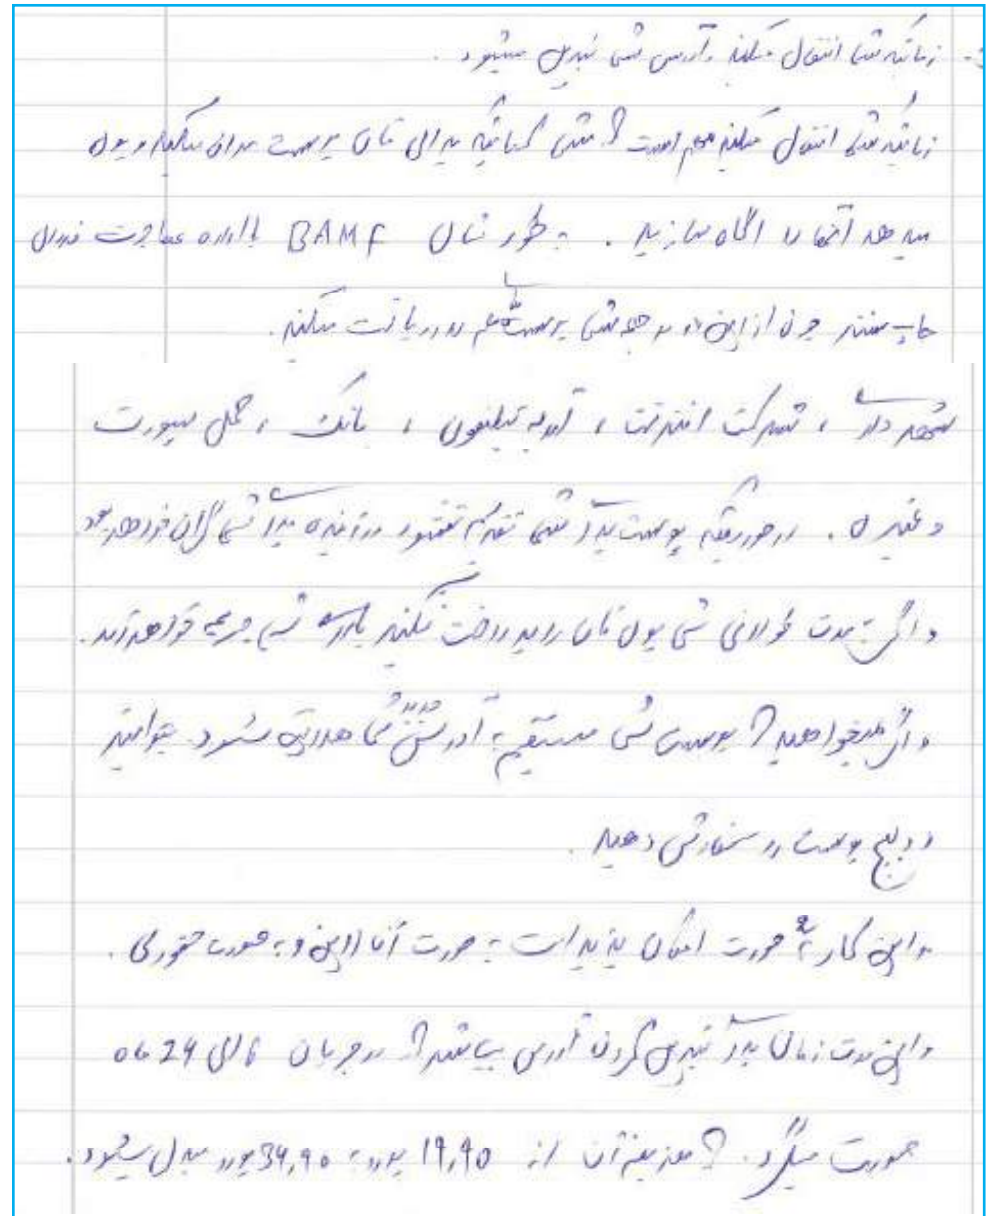 زمانیکه شما انتقال میکنید، آدرس شما تبدیل میشود.
زمانیکه شما انتقال میکنید مهم است که شما کسانیکه برای تان پوست روان میکنند و پول
میدهد آنها را آگاه سازید. به طور مثال BAMF یا اداره مهاجرت فدرال
جاب سنتر چون از این به بعد شما پوست هم دریافت میکنید.
شهرداری، شرکت انترنت، اداره تیلیفون، بانک، محل سپورت
و غیره. در صورتیکه پوست برای شما تقدیم نشود در آینده برای شما گران خواهد بود
و اگر به مدت طولانی شما پول تان را پرداخت نکنید بالای شما جریمه خواهد آمد.
و اگر میخواهید که پوست شما مستقیم به آدرس جدید شما داده شود. میتوانید
در دویچ پوست سفارش دهید.
و این کار به 2 صورت امکان پذیر است به صورت آنلاین و به صورت حضوری.
و این مدت زمان برای تبدیل کردن آدرس میباشد که در جریان 24 ماه
صورت میگیرد. که هزینه آن از 19,90 یورو به 34,90 یورو مبدل میشود.